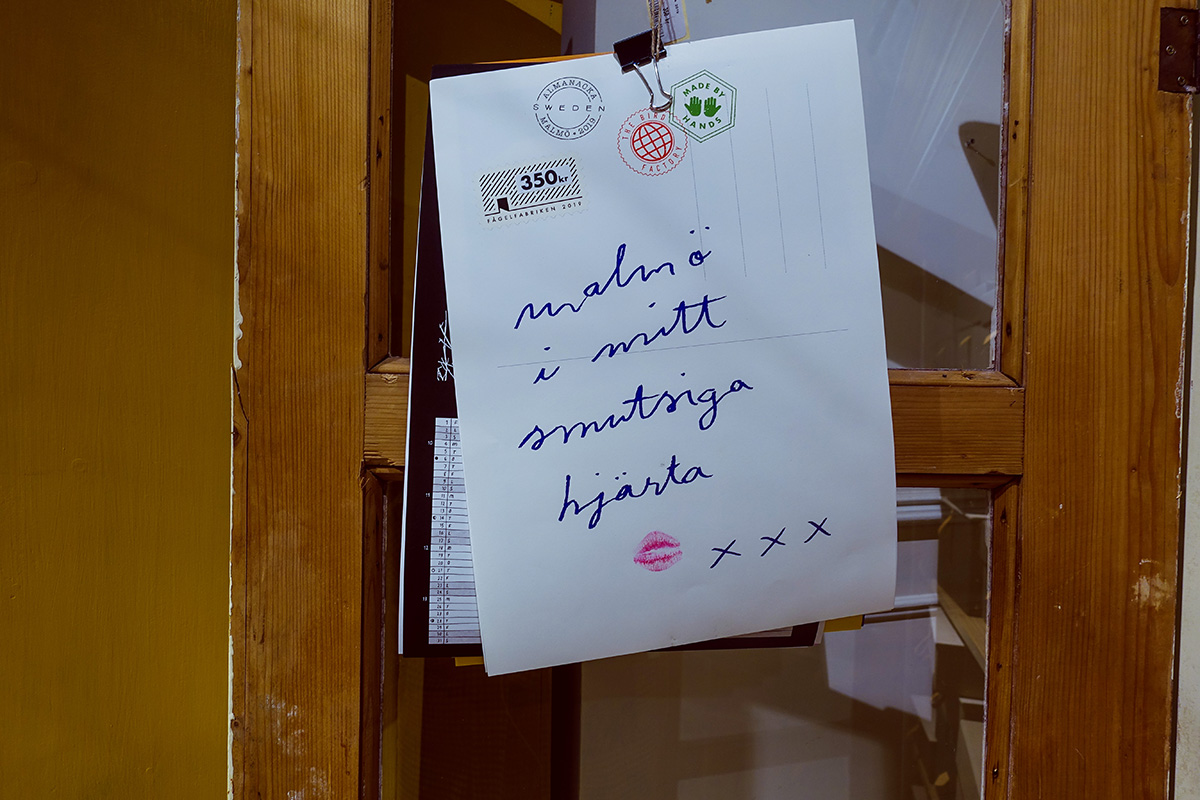 ALMANACKA
SWEDEN
MALMÖ • 2019
MADE BY
HANDS
THE BIRD
FACTORY
350kr
FÅGELFABRIKEN 2019
malmö
i mitt
smutsiga
hjärta
x x x